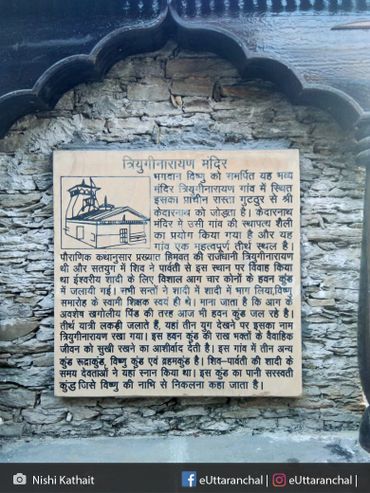 त्रियुगीनारायण मंदिर
भगवान विष्णु को समर्पित यह भव्य
मंदिर त्रियुगीनारायण गांव में स्थित
इसका प्राचीन रास्ता गुटठुर से श्री
केदारनाथ को जोड़ता है। केदारनाथ
मंदिर में उसी गांव की स्थापत्य शैली
का प्रयोग किया गया है और यह
गांव एक महत्वपूर्ण तीर्थ स्थल है।
पौराणिक कथानुसार प्रख्यात हिमवत की राजधानी त्रियुगीनारायण
थी और सतयुग में शिव ने पार्वती से इस स्थान पर विवाह किया
था इंश्वरीय शादी के लिए विशाल आग चार कोनों के हवन कुंड
में जलायी गई। सभी सन्तों ने शादी में भाग लिया,विष्णु
समारोह के स्वामी शिक्षक स्वयं ही थे। माना जाता है कि आग के
अवशेष खगोलीय पिंड की तरह आज भी हवन कुंड जल रहे है।
तीर्थ यात्री लकड़ी जलाते हैं, यहां तीन युग देखने पर इसका नाम
त्रियुगीनारायण रखा गया। इस हवन कुंड की राख भक्तों के वैवाहिक
जीवन को सुखी रखने का आशीर्वाद देती है। इस गांव में तीन अन्य
कुंड रूद्राकुंड, विष्णु कुंड एवं ब्रहमकुंड है। शिव-पार्वती की शादी के
समय देवताओं ने यहां स्नान किया था। इस कुंड का पानी सरस्वती
कुंड़ जिसे विष्णु की नाभि से निकलना कहा जाता है।
Nishi Kathait
eUttaranchal | eUttaranchal